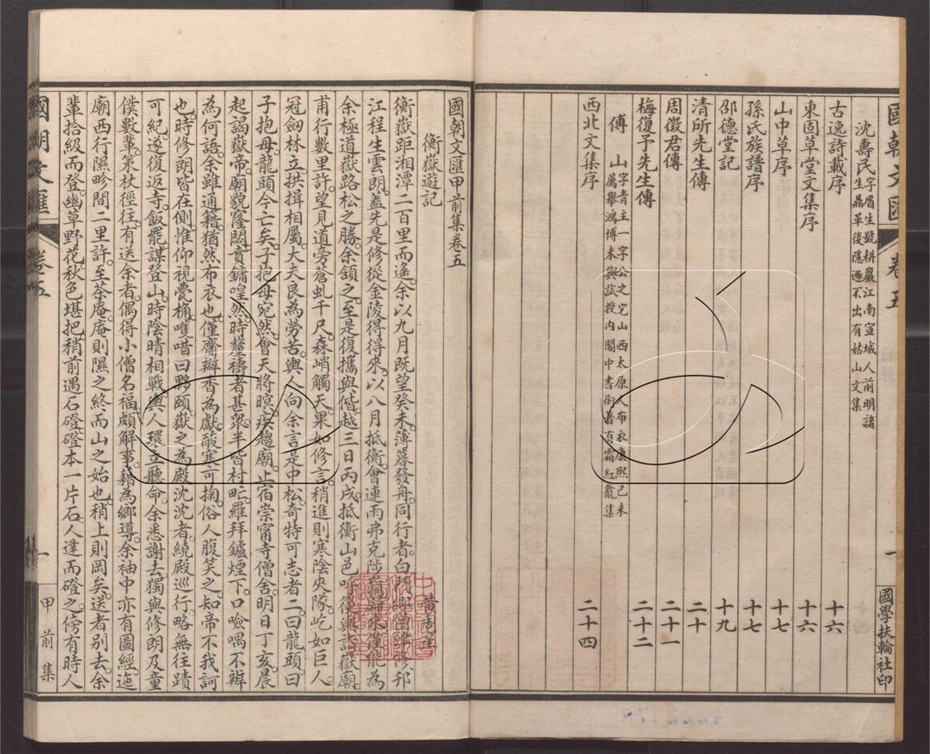 國朝文匯 卷五 一 國學扶輪社印
沈壽民 字眉生號耕巖江南宣城人前明諸生鼎革後隱遯不出有姑山文集
古逸詩載序 十六
東固草堂文集序 十六
山中草序 十七
孫氏族譜序 十七
邵德堂記 十九
清所先生傳 二十
周徵君傳 二十一
梅復予先生傳 二十二
傅山 字青主一字公之它山西太原人布衣康熙己未薦舉鴻博未與試授內閣中書銜著有霜紅龕集
西北文集序 二十四
國朝文匯甲前集卷五
衡嶽遊記 黃周星
衡嶽距湘潭二百里而遙余以九月既望癸未薄暮發舟同行者白門
江程生雲朗蓋先是修從金陵得得來以八月抵衡會連雨弗克陟
余極道嶽路松之勝余頷之至是復攜與偕越三日丙戌抵衡山邑
甫行數里許望見道旁蒼虬千尺森峭觸天果如修言稍進則寒陰夾隊屹如巨人
冠劍林立拱揖相屬大夫良為勞苦輿人向余言是中松奇特可志者二曰龍頭曰
子抱母龍頭今亡矣子抱母宛然會天將暝疾趨廟上宿崇甯寺僧舍明日丁亥晨
起謁嶽帝廟貌窿閎賁鏞喤然時釐禱者甚眾半皆村甿羅拜鑪煙下口噞喁不辨
為何語余雖通籍猶然布衣也僅齎瓣香為獻酸寒可掬俗人腹笑之知帝不我訶
也時修朗皆在側惟仰視甍桷嘆唶曰夥頤嶽之為殿沈沈者繞殿巡行略無往蹟
可紀遂復返寺飯罷謀登山時陰晴相戰輿人環立聽命余悉謝去獨與修朗及童
僕數輩策杖徑往有送余者偶得小僧名福頗解事藉為鄉導余袖中亦有圖經迤
廟西行隰畛間二里許至茶庵庵則隰之終而山之始也稍上則岡矣送者別去余
輩拾級而登幽草野花秋色堪把稍前遇石磴磴本一片石人達而磴之傍有時人
國朝文匯 卷五 一 甲前集